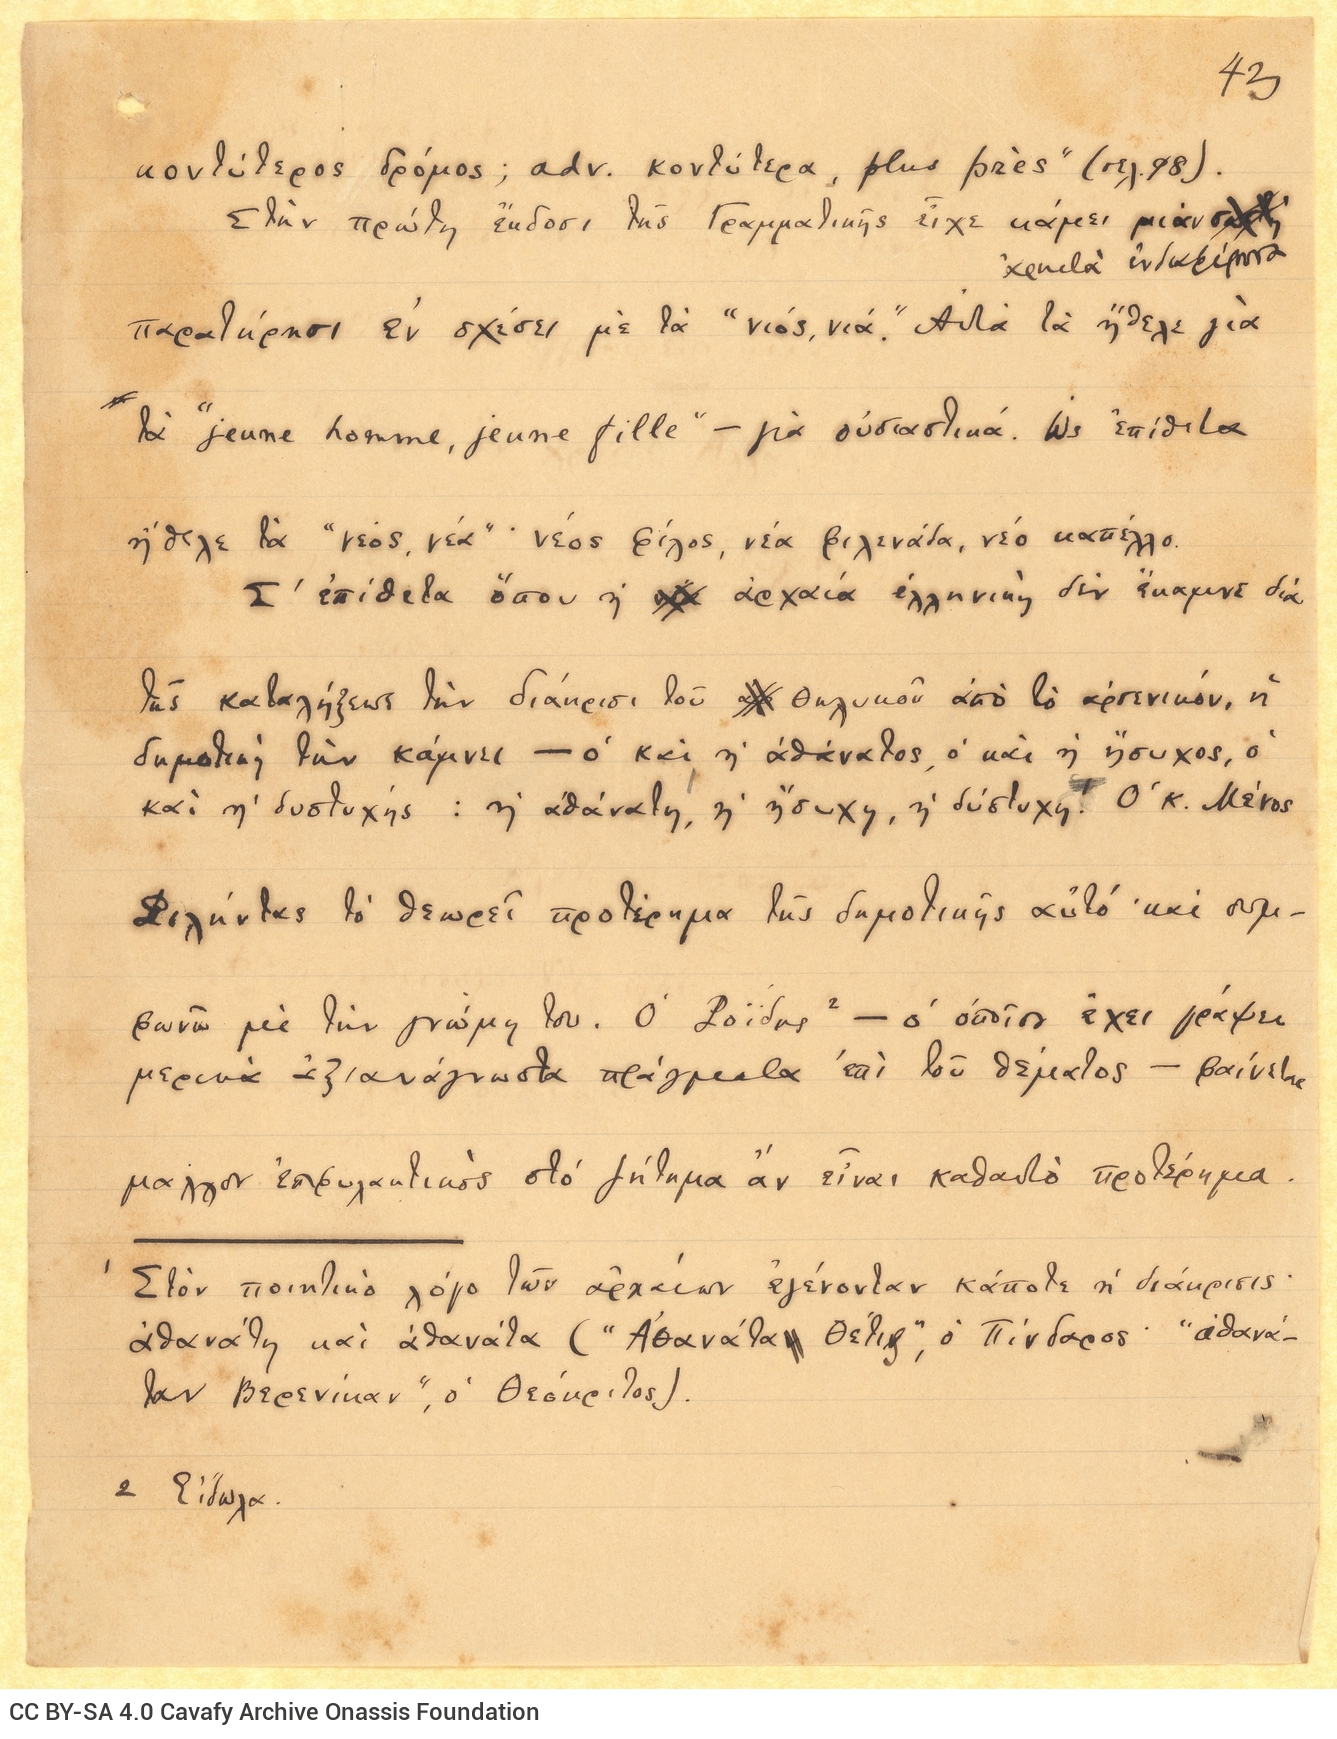 43
κοντύτερος δρόμος; adv. κοντύτερα, plus près" (σελ. 98).
Στὴν πρώτη ἔκδοσι τῆς Γραμματικῆς εἶχε κάμει μιὰν
ἀρκετὰ ἐνδιαφέρουσα
παρατήρησι ἐν σχέσει μὲ τὰ "νιός, νιά." Αὐτὰ τὰ ἤθελε γιὰ
τὰ "jeune homme, jeune fille" — γιὰ οὐσιαστικά. Ὡς ἐπίθετα
ἤθελε τὰ "νέος, νέα"· νέος φίλος, νέα φιλενάδα, νέο καπέλλο.
Σ' ἐπίθετα ὅπου ἡ ἀρχαία ἑλληνικὴ δὲν ἔκαμνε διὰ
τῆς καταλήξεως τὴν διάκρισι τοῦ θηλυκοῦ ἀπὸ τὸ ἀρσενικόν, ἡ
δημοτικὴ τὴν κάμνει — ὁ καὶ ἡ ἀθάνατος, ὁ καὶ ἡ ἥσυχος, ὁ
καὶ ἡ δυστυχής : ἡ ἀθάνατη, ἡ ἥσυχη, ἡ δύστυχη.¹ Ὁ κ. Μένος
Φιλήντας τὸ θεωρεῖ προτέρημα τῆς δημοτικῆς αὐτό· καὶ συμ-
φωνῶ μὲ τὴν γνώμη του. Ὁ Ροΐδης ² — ὁ ὁποῖος ἔχει γράψει
μερικὰ ἀξιανάγνωστα πράγματα ἐπὶ τοῦ θέματος — φαίνεται
μᾶλλον ἐπιφυλακτικὸς στὸ ζήτημα ἂν εἶναι καθαυτὸ προτέρημα.
¹ Στὸν ποιητικὸ λόγο τῶν ἀρχαίων ἐγένονταν κάποτε ἡ διάκρισις·
ἀθανάτη καὶ ἀθανάτα ("Ἀθανάτα Θέτις", ὁ Πίνδαρος· "ἀθανά-
ταν Βερενίκαν", ὁ Θεόκριτος).
2 Εἴδωλα.
CC BY-SA 4.0 Cavafy Archive Onassis Foundation